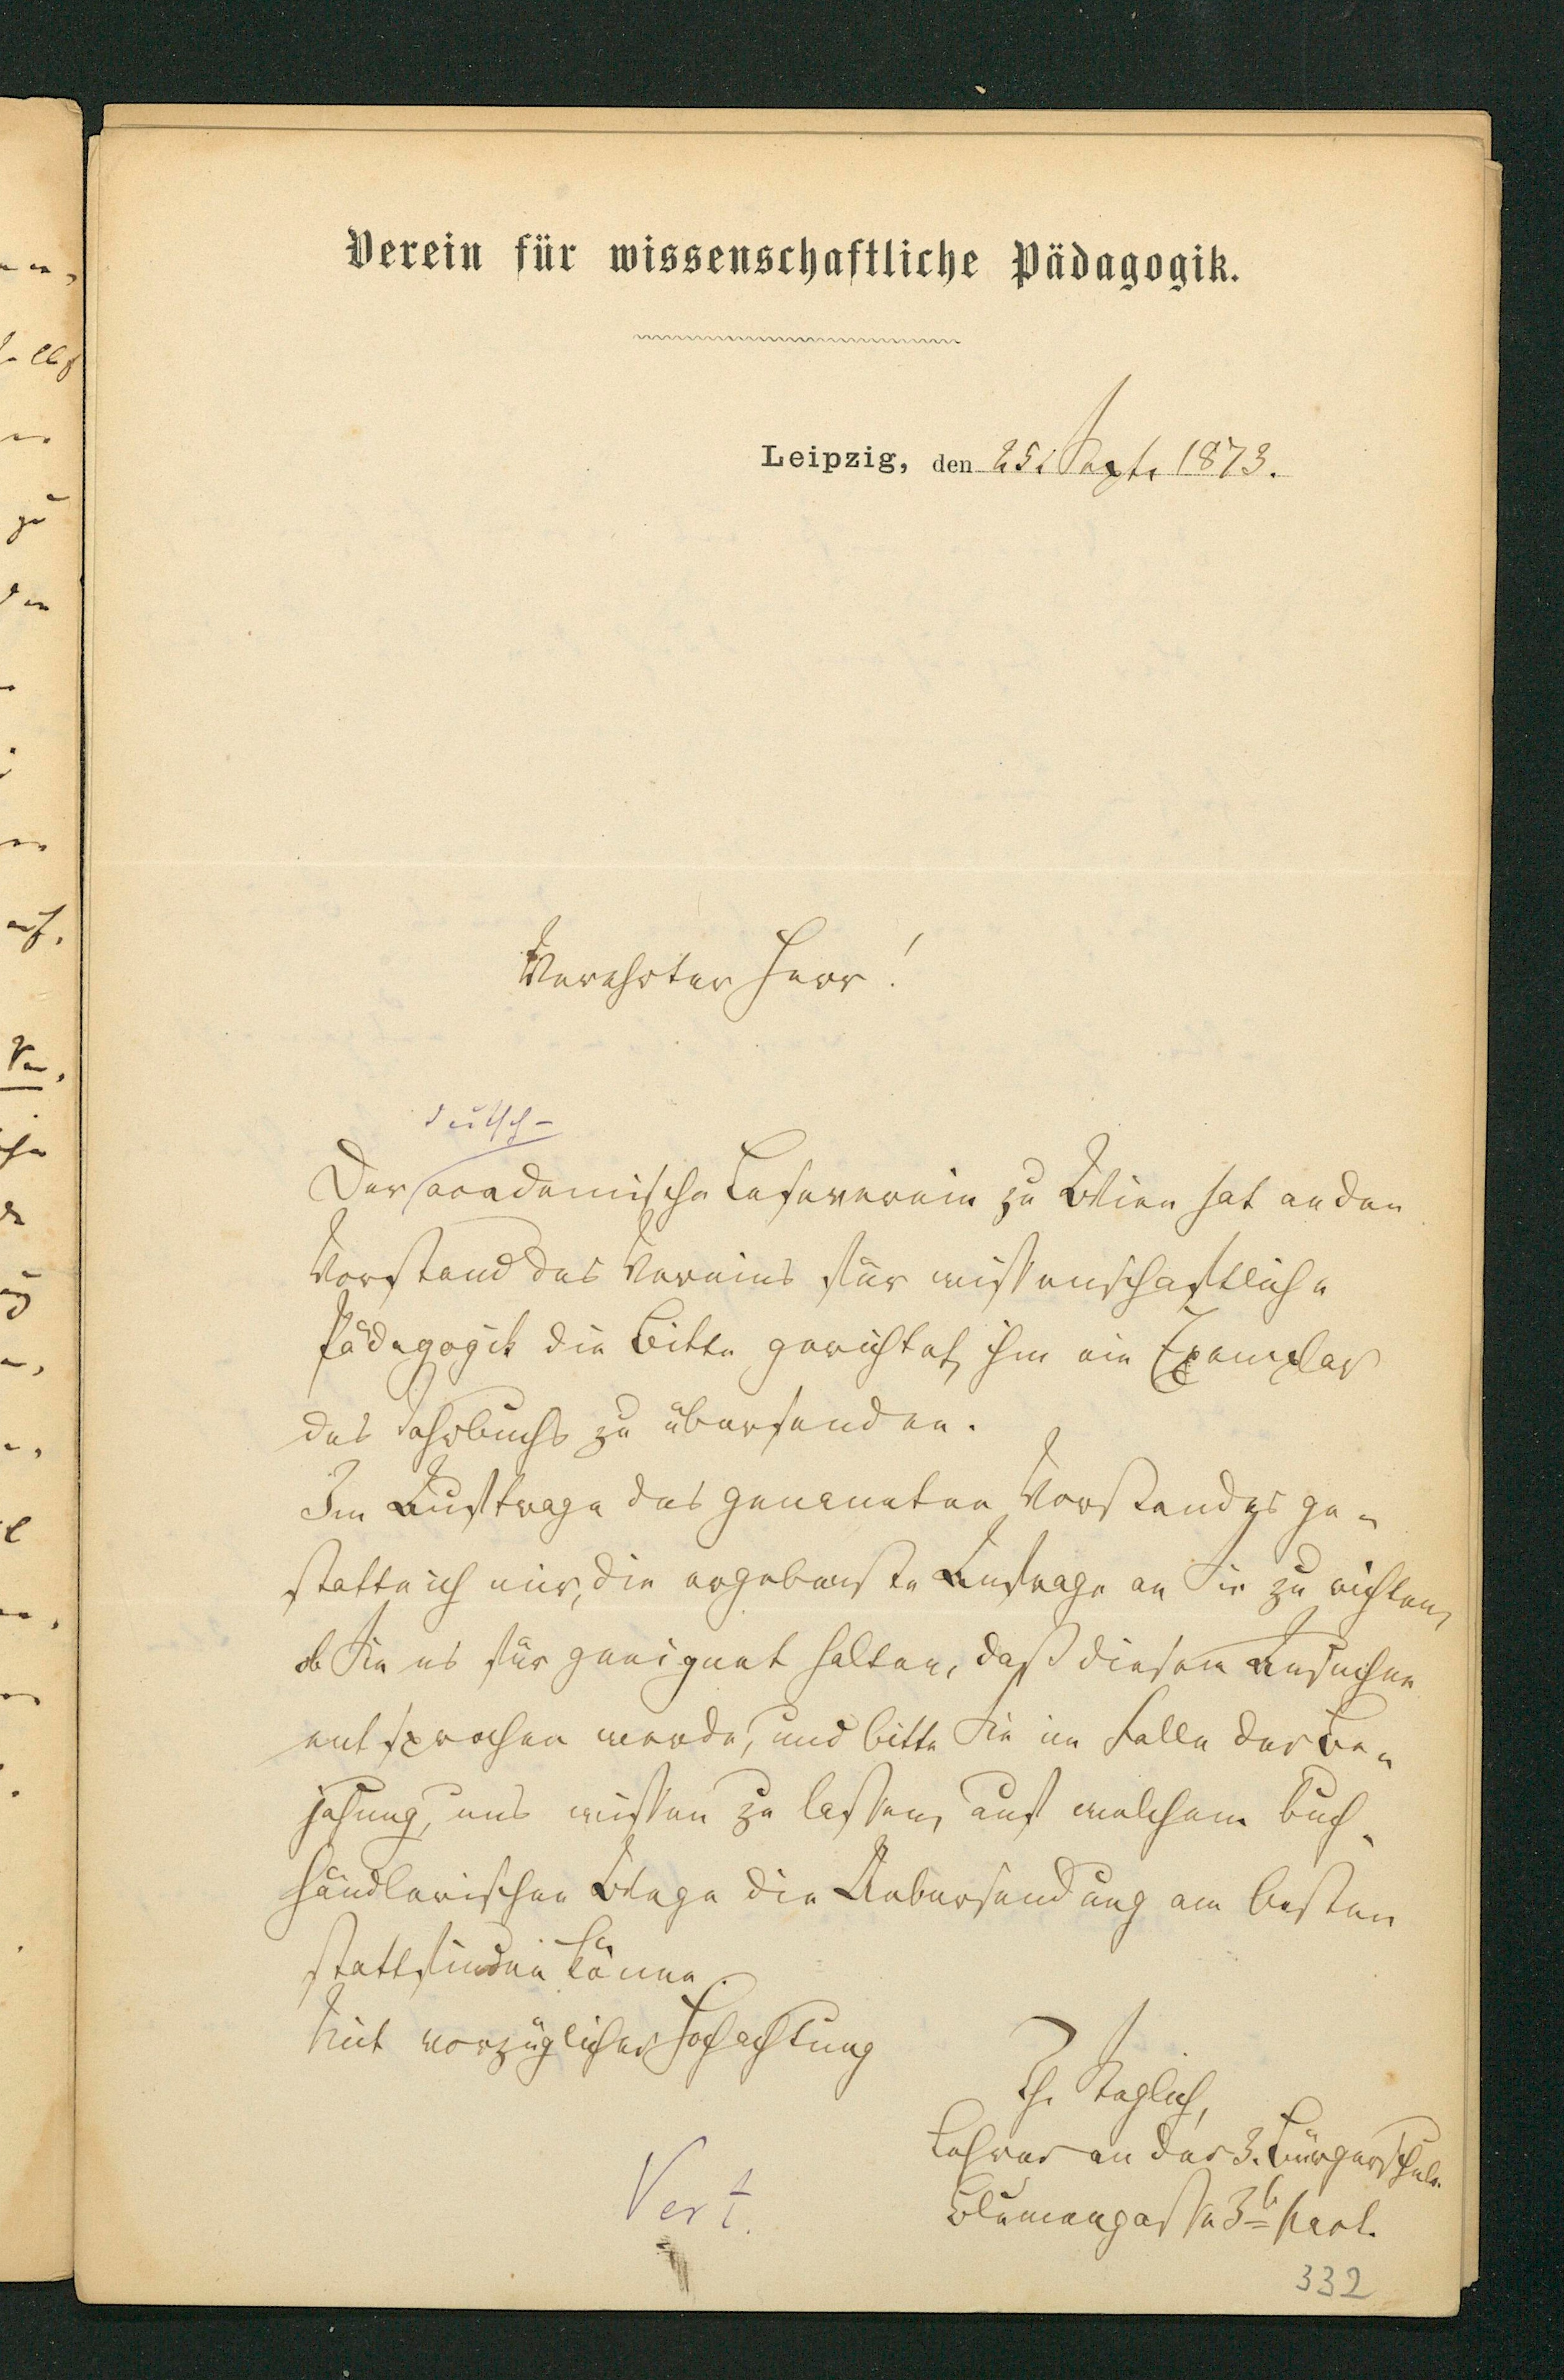 Verein für wissenschaftliche Pädagogik.
Leipzig, den 25. Sept. 1873.
Verehrter Herr!
deutsch-
Der academische Leseverein zu Wien hat an den
Vorstand des Vereins für wissenschaftliche
Pädagogik die Bitte gerichtet, ihm ein Exemplar
des Jahrbuchs zu übersenden.
Im Auftrage des genannten Vorstandes ge-
statte ich mir, die ergebenste Anfrage an Sie zu richten,
ob Sie es für geeignet halten, daß diesem Ansuchen
entsprochen werde, und bitte Sie im Falle der Be-
jahung, uns wissen zu lassen, auf welchem buch-
händlerischen Wege die Uebersendung am besten
stattfinden könne.
Mit vorzüglicher Hochachtung
Th.
Lehrer an der 3. Bürgerschule.
Blumengasse 3b part.
Vert.
332